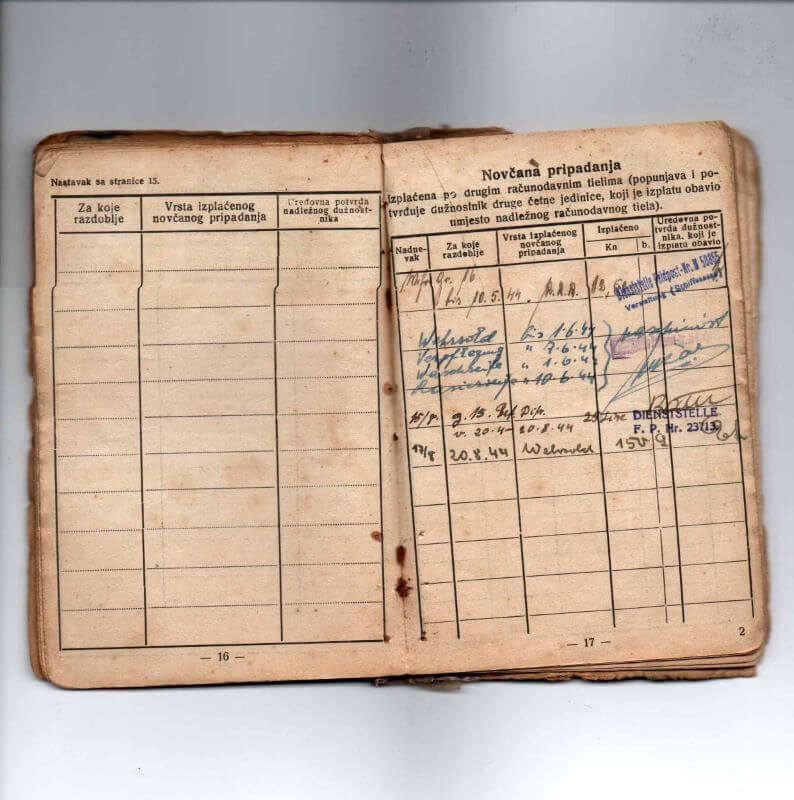 Nastavak sa stranice 15.
Za koje razdoblje
Vrsta izplaćenog novčanog pripadanja
Uredovna potvrda nadležnog dužnostnika
— 16 —
Novčana pripadanja
izplaćena po drugim računodavnim tielima (popunjava i po-
tvrđuje dužnostnik druge četne jedinice, koji je izplatu obavio
umjesto nadležnog računodavnog tiela).
Nadne-
vak
Za koje razdoblje
Vrsta izplaćenog novčanog pripadanja
Izplaćeno
Kn b.
Uredovna po-
tvrda dužnost-
nika, koji je
izplatu obavio
Gr. 16
bis 10.5.44
Dienststelle Feldpost-Nr.
Verwaltung
Wehrsold bis 1.6.44
Verpflegung " 7.6.44
Waschseife " 1.6.44
Rasierseife " 10.6.44
15/8.
v. 20.4 - 20.8.44
DIENSTSTELLE
F. P. Nr. 23713
17/8 20.8.44 Wehrsold 150
— 17 —
2